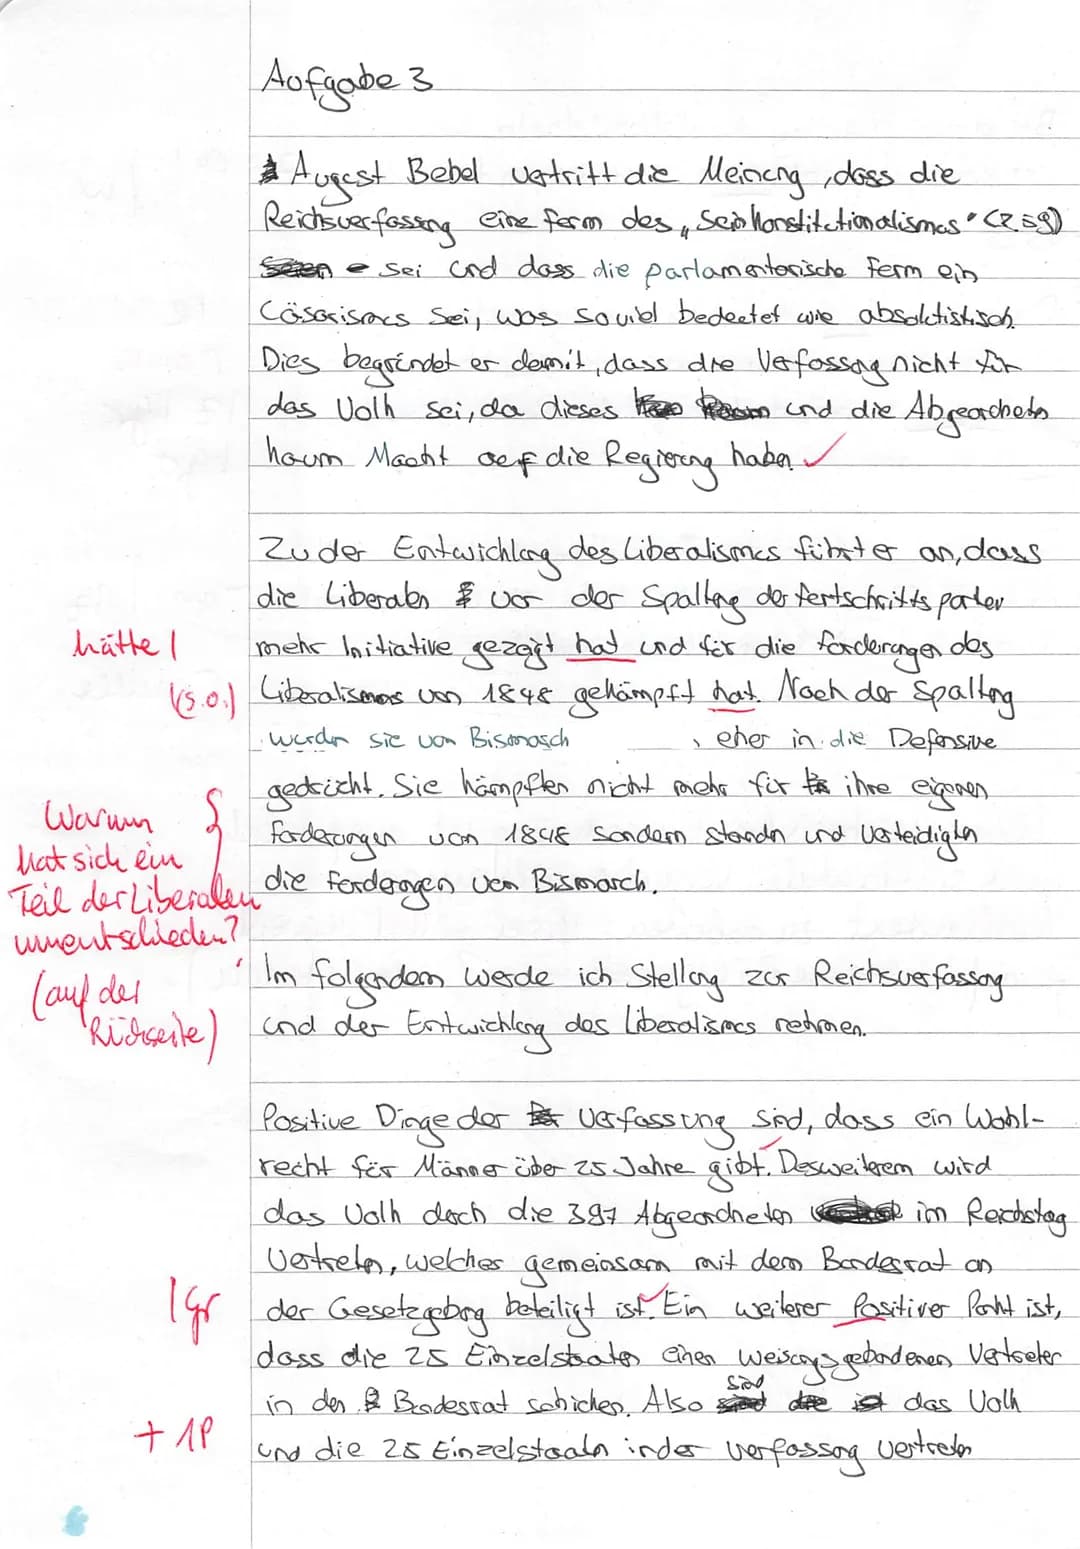 Aufgabe 3
August Bebel vertritt die Meinung, dass die
Reichsverfassung eine Form des „Scheinkonstitutionalismus" (Z.59)
sei und dass die parlamentarische Form ein
Cäsarismus sei, was soviel bedeutet wie absolutistisch.
Dies begründet er damit, dass die Verfassung nicht für
das Volk sei, da dieses und die Abgeordneten
kaum Macht auf die Regierung haben. ✓
Zu der Entwicklung des Liberalismus führt er an, dass
die Liberalen vor der Spaltung der Fortschrittspartei
hätte |
mehr Initiative gezeigt hat und für die Forderungen des
√(s.o.)
Liberalismus von 1848 gekämpft hat. Nach der Spaltung
wurden sie von Bismarck, eher in die Defensive
gedrückt. Sie kämpften nicht mehr für ihre eigenen
Forderungen von 1848 sondern standen und verteidigten
die Forderungen von Bismarck.
Warum
hat sich ein
Teil der Liberalen
umentschieden?
(auf der
Rückseite)
Im folgendem werde ich Stellung zur Reichsverfassung
und der Entwicklung des Liberalismus nehmen.
Positive Dinge der Verfassung sind, dass ein Wahl-
recht für Männer über 25 Jahre gibt. Desweiterem wird
das Volk durch die 397 Abgeordneten im Reichstag
Vertreten, welcher gemeinsam mit dem Bundesrat an
| gr
der Gesetzgebung beteiligt ist. Ein weiterer Positiver Punkt ist,
dass die 25 Einzelstaaten einen weisungsgebundenen Vertreter
in den Bundesrat schicken. Also sind das Volk
+ 1P
und die 25 Einzelstaaten in der Verfassung vertreten